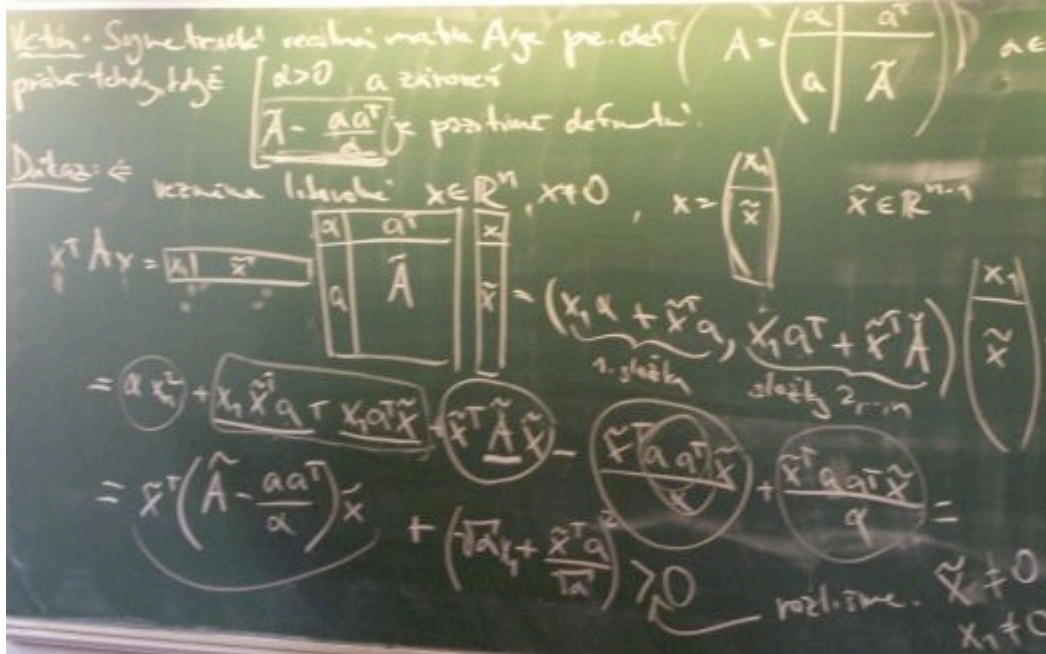 Věta. Symetrická reálná matice A je poz. def. ( A = ( α | aᵀ / a | Ã ) ) a ∈
právě tehdy, když α>0, a zároveň
Ã - aaᵀ/α je pozitivně definitní.
Důkaz: ⇐
vezmíme libovolné x ∈ ℝⁿ, x ≠ 0, x = ( x₁ / x̃ ) x̃ ∈ ℝⁿ⁻¹
xᵀAx = x₁ | x̃ᵀ α aᵀ a Ã x₁ x̃ = (x₁α + x̃ᵀa, x₁aᵀ + x̃ᵀÃ) ( x₁ / x̃ )
1. složka složky 2,...,n
= αx₁² + x₁x̃ᵀa + x₁aᵀx̃ + x̃ᵀÃx̃ - x̃ᵀaaᵀx̃/α + x̃ᵀaaᵀx̃/α =
= x̃ᵀ(Ã - aaᵀ/α)x̃ + (√α x₁ + x̃ᵀa/√α)² > 0
rozlišme. x̃ ≠ 0
x₁ ≠ 0